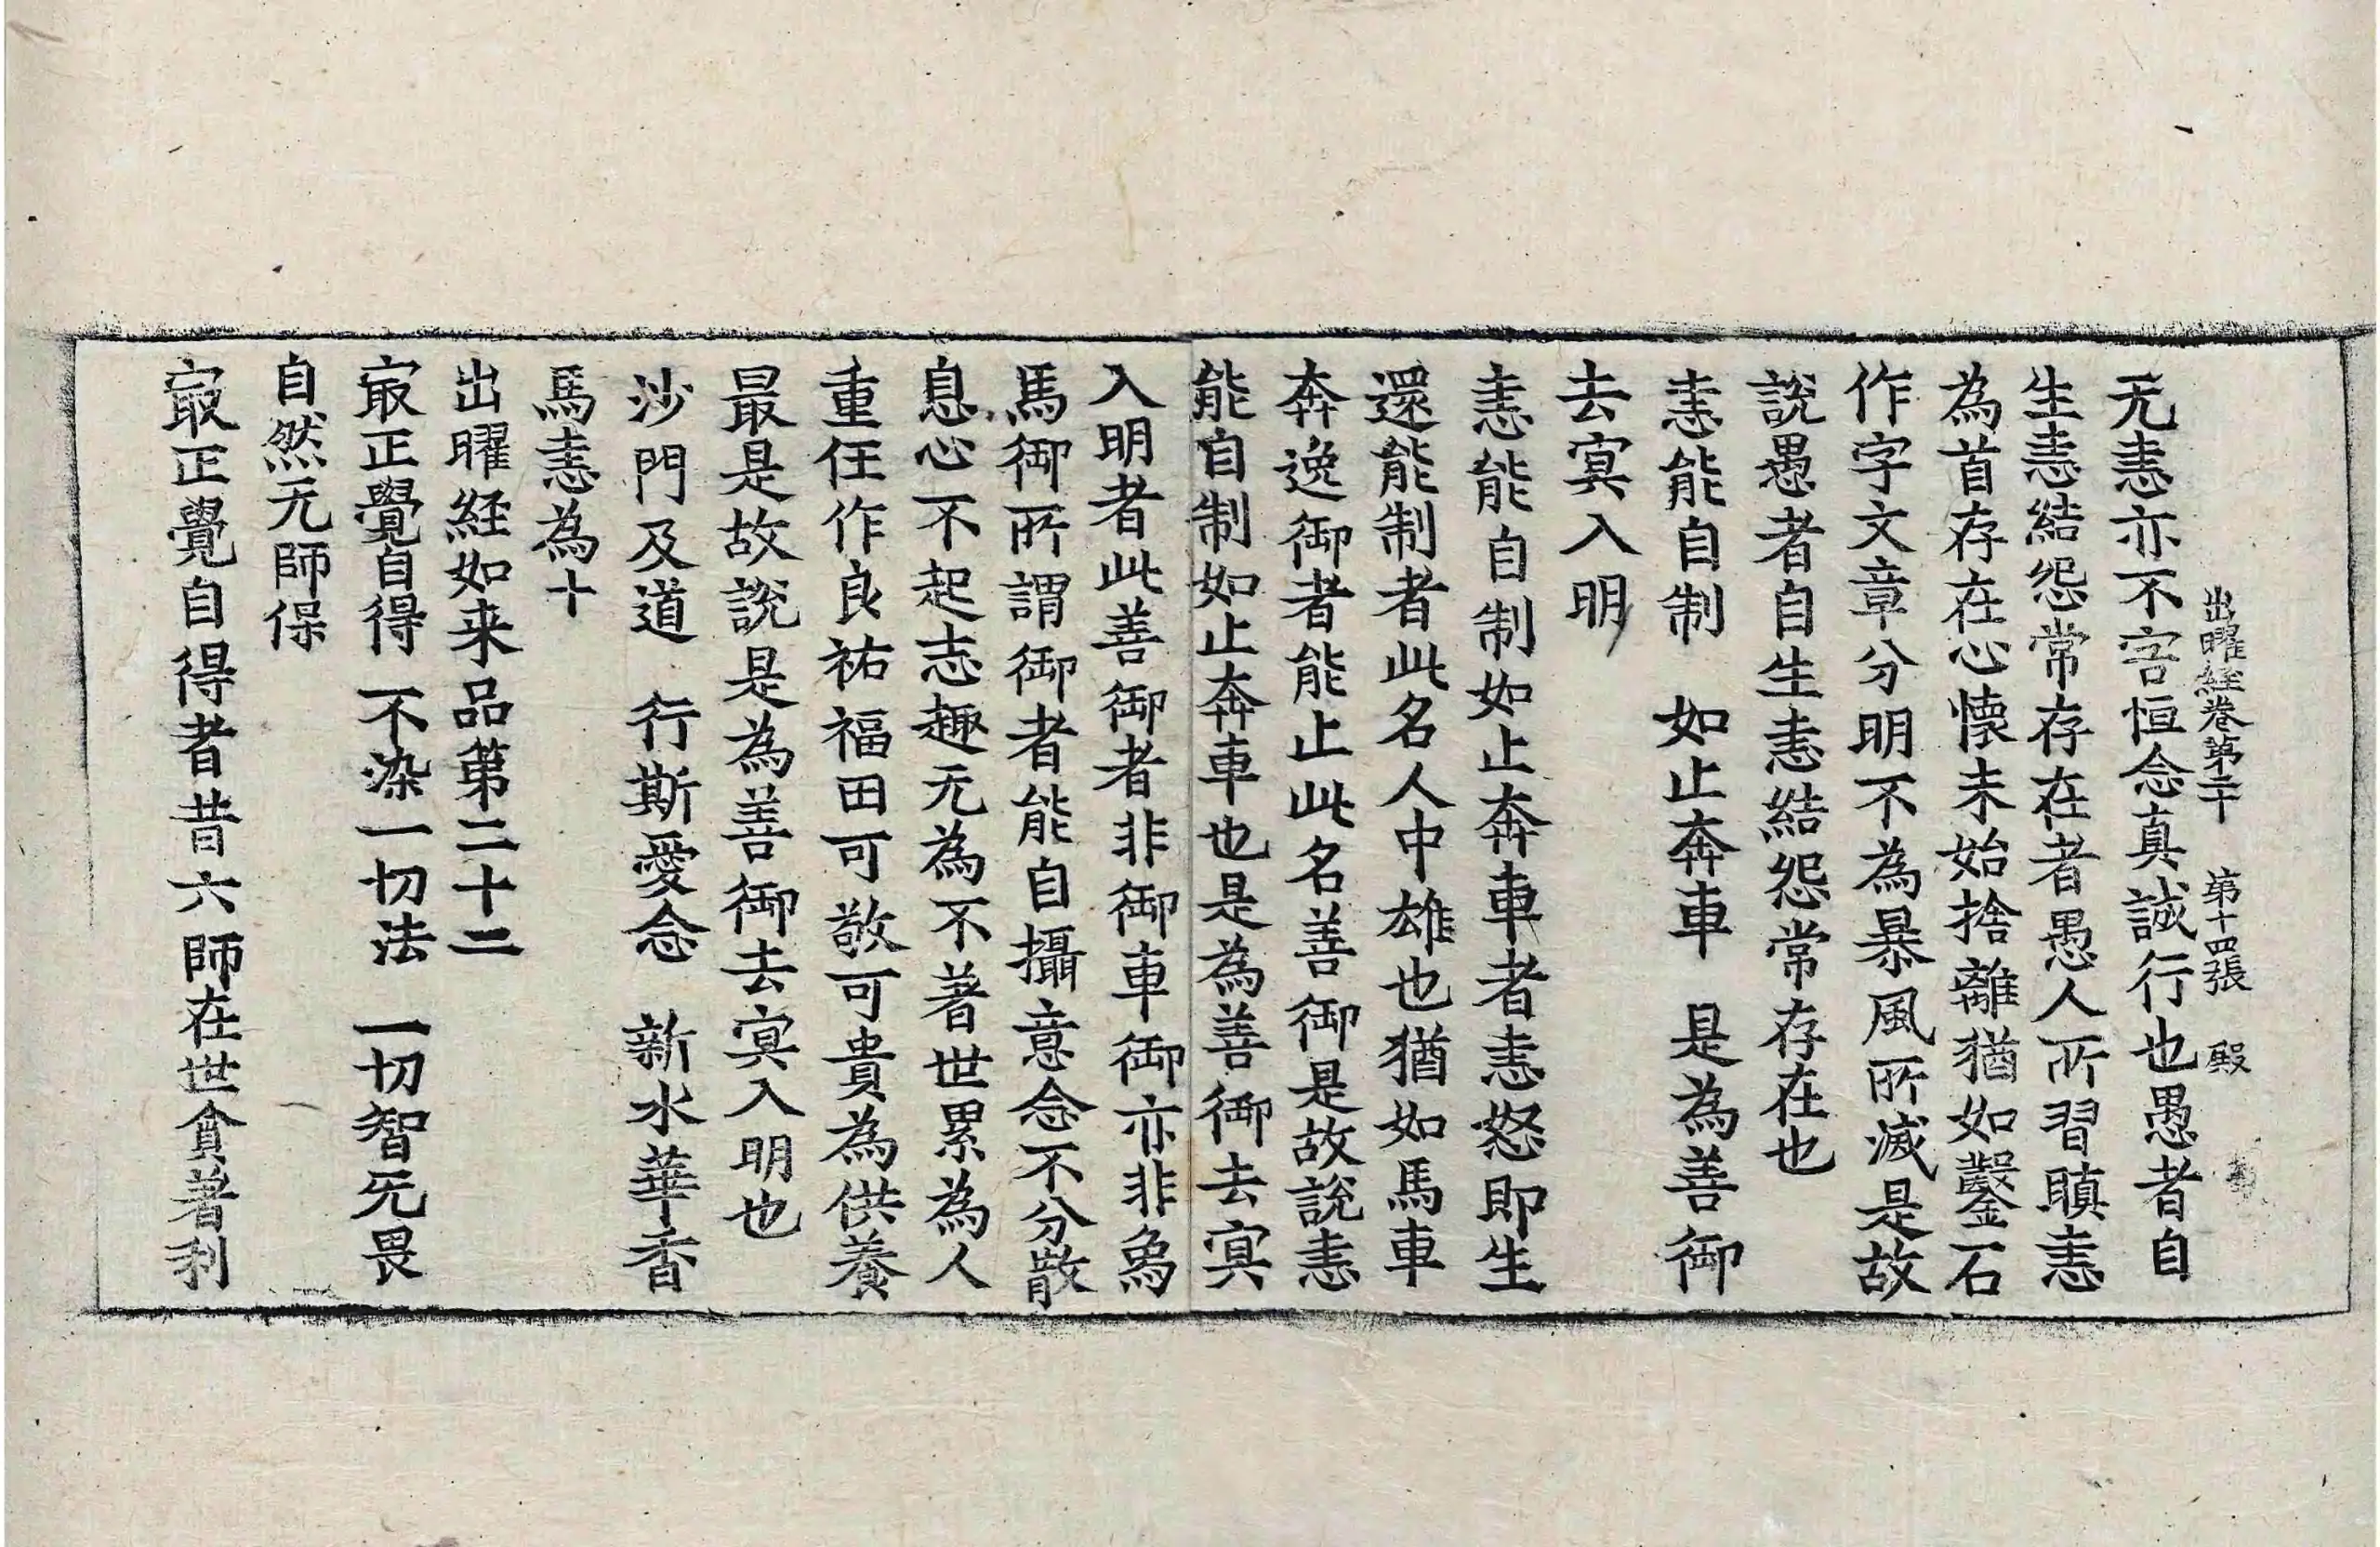 出曜経卷第二十　第十四張　殿
无恚亦不害恒念真誠行也愚者自
生恚結怨常存在者愚人所習瞋恚
為首存在心懷未始捨離猶如鑿石
作字文章分明不為暴風所滅是故
說愚者自生恚結怨常存在也
恚能自制　如止奔車　是為善御
去冥入明
恚能自制如止奔車者恚怒即生
還能制者此名人中雄也猶如馬車
奔逸御者能止此名善御是故說恚
能自制如止奔車也是為善御去冥
入明者此善御者非御車御亦非為
馬御所謂御者能自攝意念不分散
息心不起志趣无為不著世累為人
重任作良祐福田可敬可貴為供養
最是故說是為善御去冥入明也
沙門及道　行斯愛念　新水華香
馬恚為十
出曜経如来品第二十二
㝡正覺自得　不染一切法　一切智无畏
自然无師保
㝡正覺自得者昔六師在世貪著利